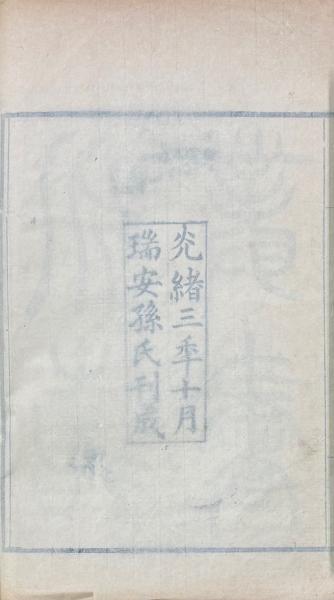 光緒三年十月
瑞安孫氏刊成